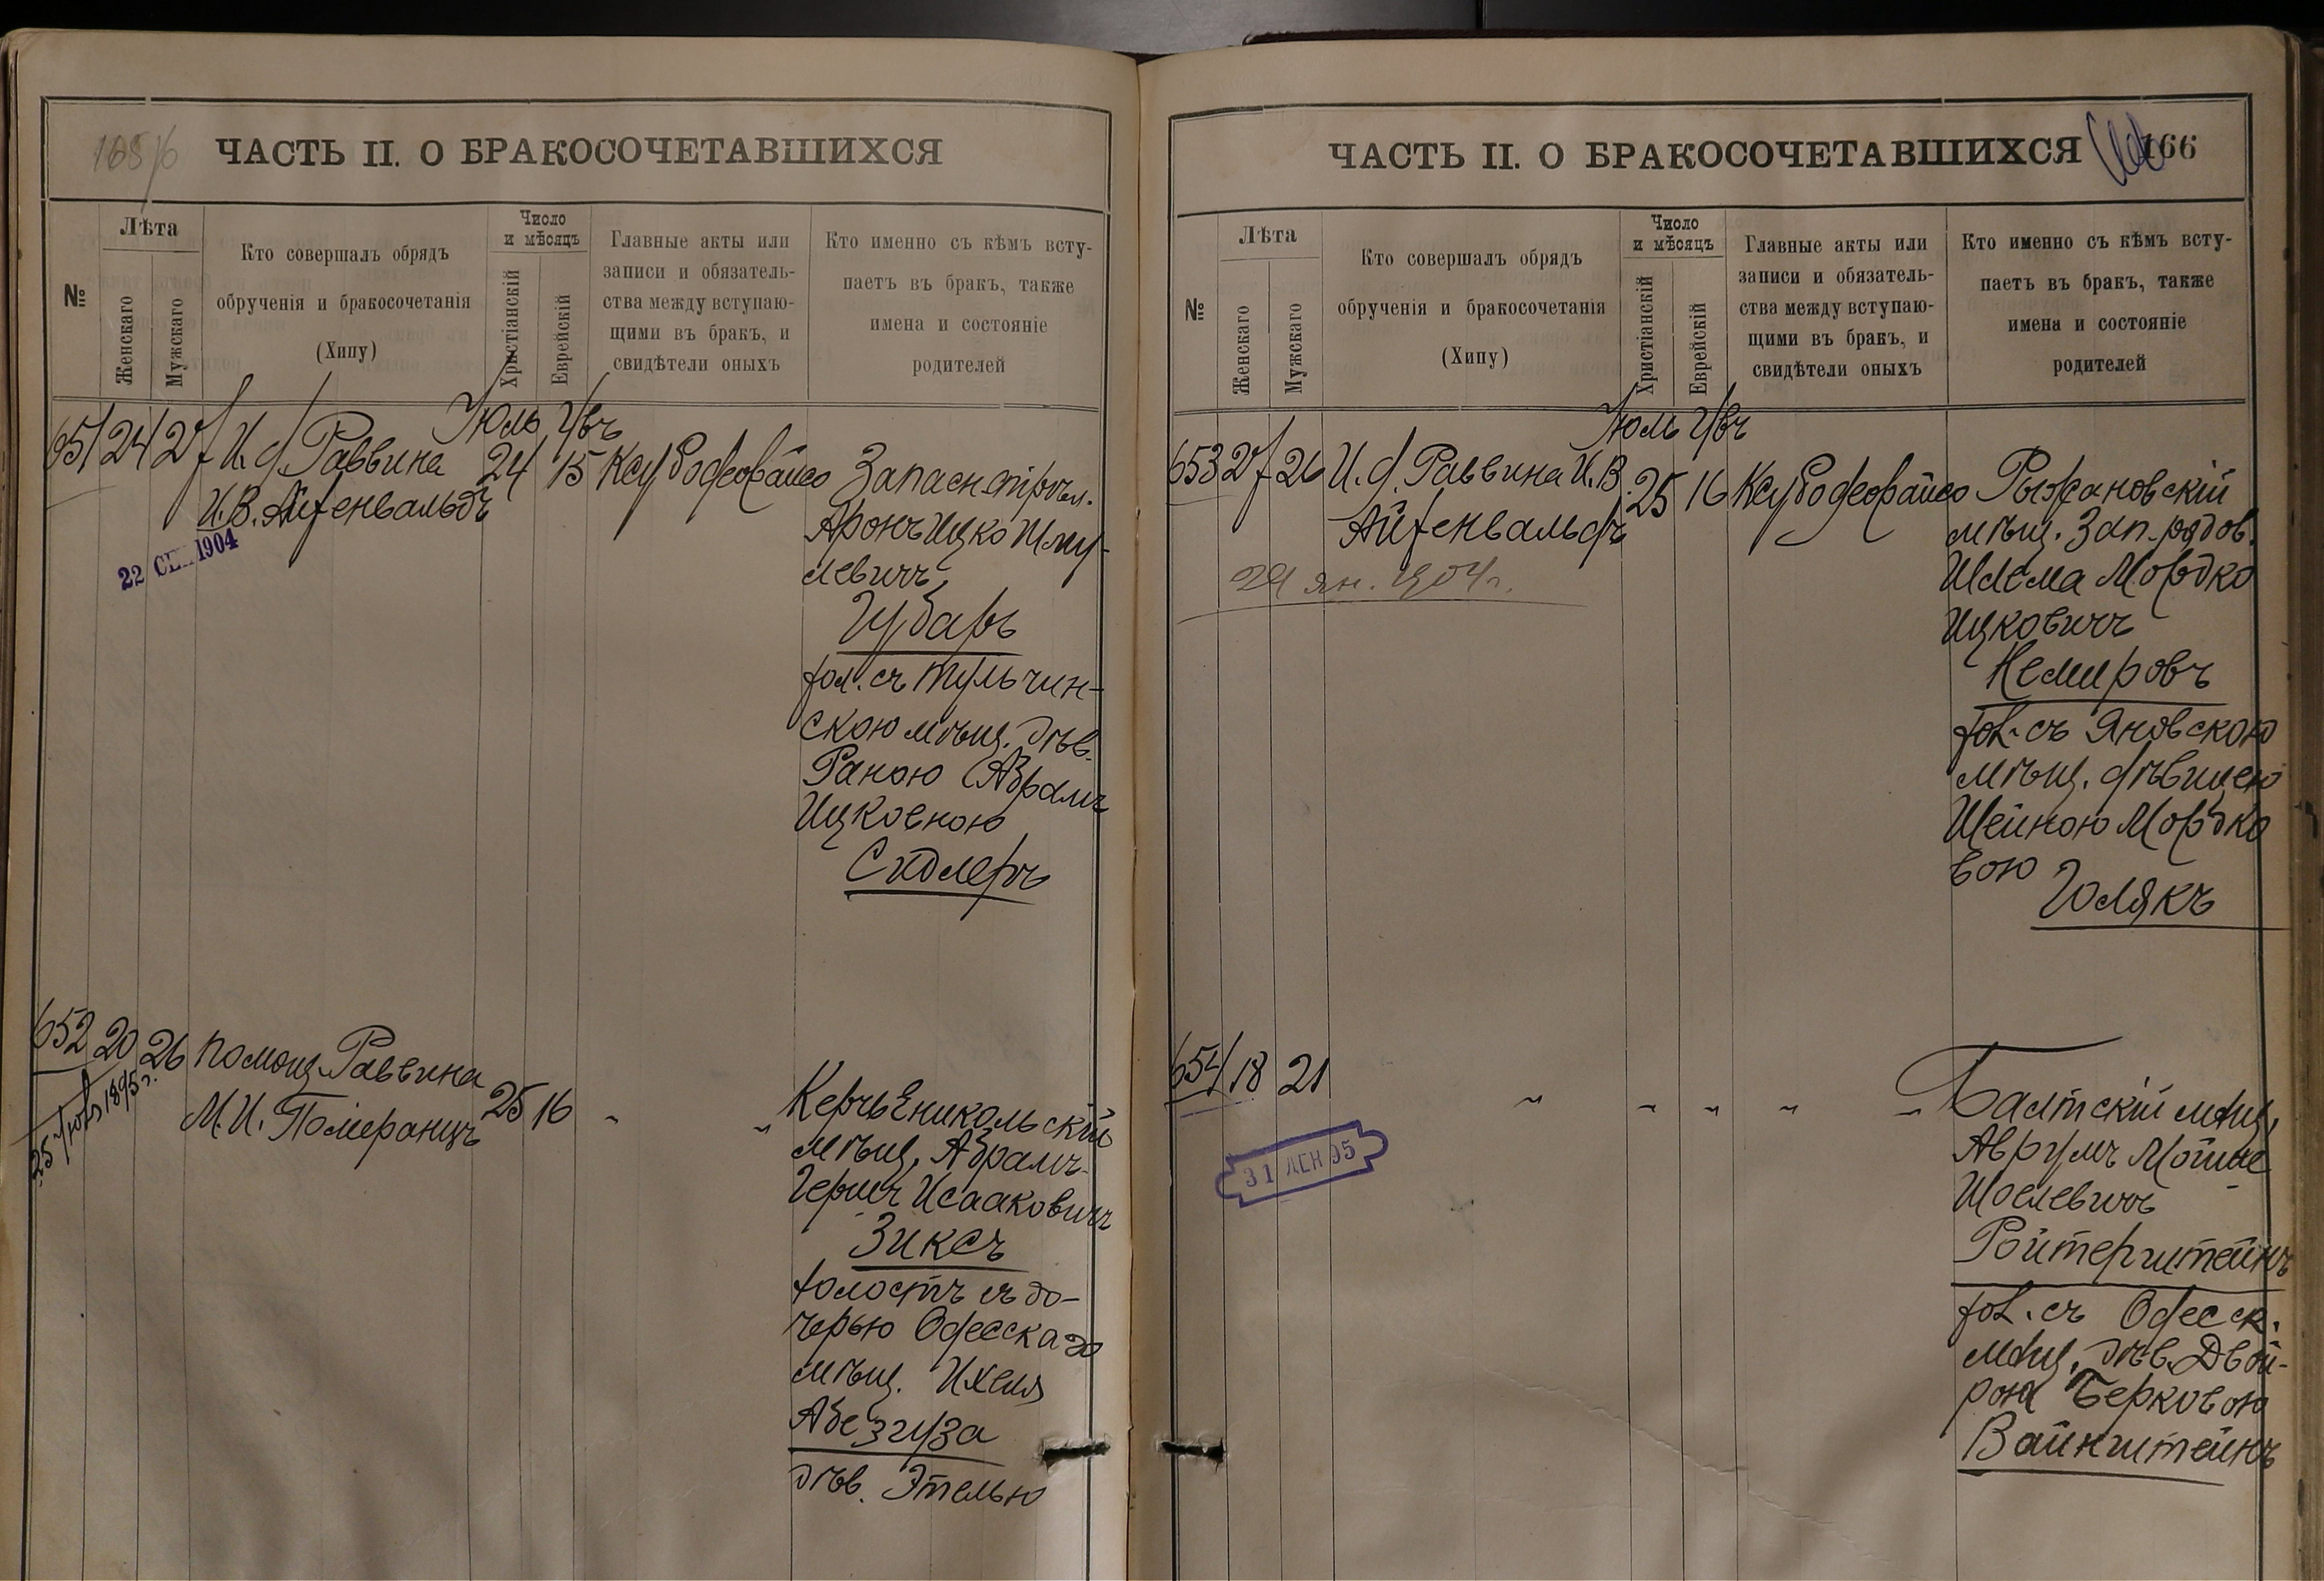 165/6
ЧАСТЬ II. О БРАКОСОЧЕТАВШИХСЯ
№
Лѣта
Женскаго
Мужскаго
Кто совершалъ обрядъ
обрученія и бракосочетанія
(Хипу)
Число
и мѣсяцъ
Христіанскій
Еврейскій
Главные акты или
записи и обязатель-
ства между вступаю-
щими въ бракъ, и
свидѣтели оныхъ
Кто именно съ кѣмъ всту-
паетъ въ бракъ, также
имена и состояніе
родителей
Іюль
651 24 27 И. д. Раввина 24 15
И. В. Айхенвальдъ
22 СЕН 1904
Запасн.
Аронъ Ицко Шму-
левичъ,
Губарь
хол. съ Тульчин-
скою мѣщ. дѣв.
Раною Абрамъ
Ицковною
Сидлеръ
652 20 26 помощ. Раввина
М. И. Померанцъ 25 16 " "
25 Іюля 1895 г.
Керчь Еникольскій
мѣщ. Абрамъ-
Гершъ Исааковичъ
Зиксъ
холостъ съ до-
черью Одесскаго
мѣщ. Ихеля
Абезгуза
дѣв. Этелью
ЧАСТЬ II. О БРАКОСОЧЕТАВШИХСЯ
166
№
Лѣта
Женскаго
Мужскаго
Кто совершалъ обрядъ
обрученія и бракосочетанія
(Хипу)
Число
и мѣсяцъ
Христіанскій
Еврейскій
Главные акты или
записи и обязатель-
ства между вступаю-
щими въ бракъ, и
свидѣтели оныхъ
Кто именно съ кѣмъ всту-
паетъ въ бракъ, также
имена и состояніе
родителей
Іюль
653 27 26 И. д. Раввина И. В. 25 16
Айхенвальдъ
29 ян. 1904 г.
Рыжановскій
мѣщ. Зап. рядов.
Шлема Мордко
Ицковичъ
Немировъ
хол. съ Яновскою
мѣщ. дѣвицею
Шейною Мордко
вою
Голякъ
654 18 21 " " " " "
31 ДЕК 95
Балтскій мѣщ.
Аврумъ Мойше
Шоелевичъ
Ройтерштейнъ
хол. съ Одесск.
мѣщ. дѣв. Двой-
рою Берковою
Вайнштейнъ